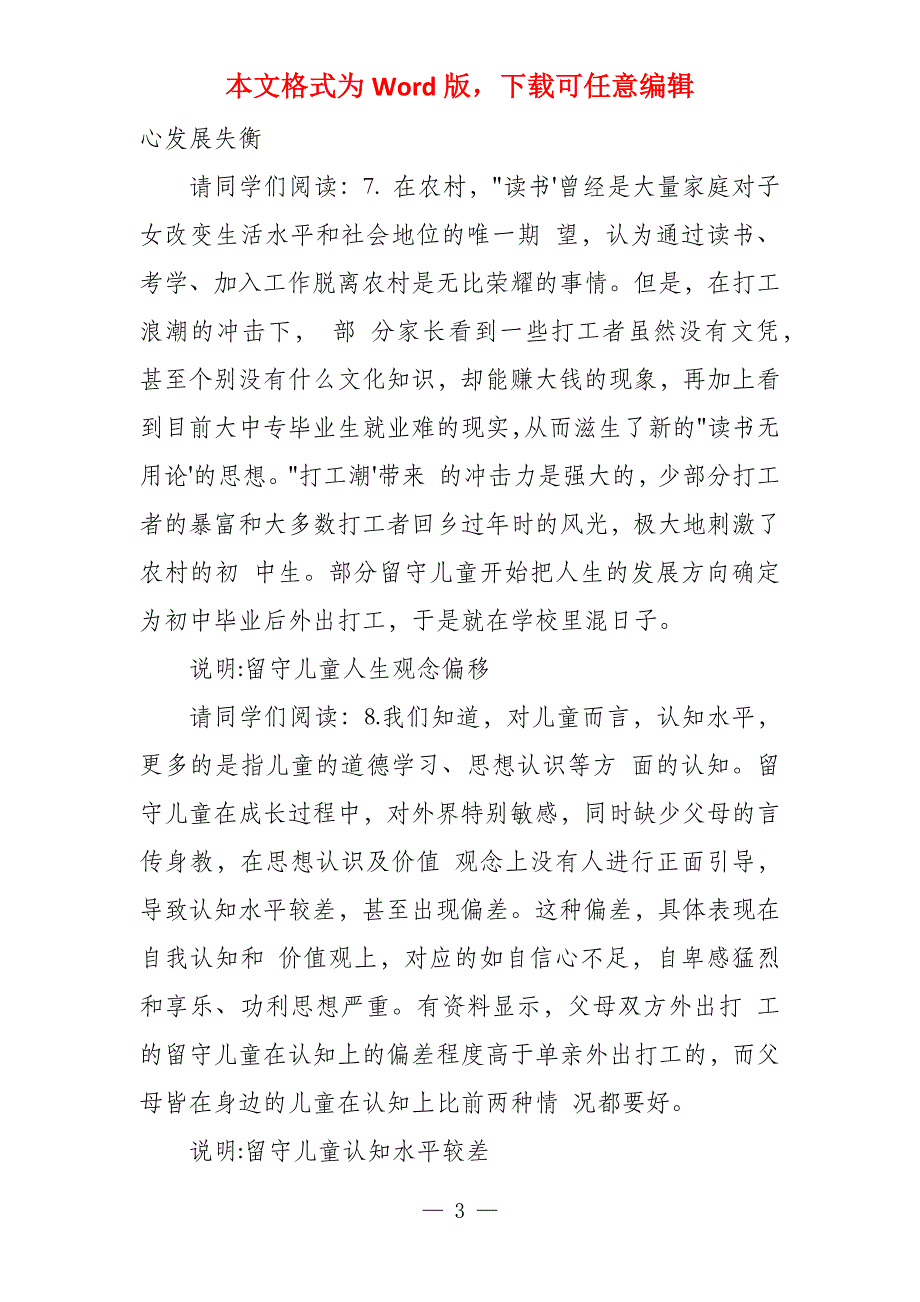 本文格式为 Word 版，下载可任意编辑
心发展失衡
请同学们阅读：7. 在农村，"读书'曾经是大量家庭对子
女改变生活水平和社会地位的唯一期 望，认为通过读书、
考学、加入工作脱离农村是无比荣耀的事情。但是，在打工
浪潮的冲击下， 部 分家长看到一些打工者虽然没有文凭，
甚至个别没有什么文化知识，却能赚大钱的现象，再加上看
到目前大中专毕业生就业难的现实，从而滋生了新的"读书无
用论'的思想。"打工潮'带来 的冲击力是强大的，少部分打工
者的暴富和大多数打工者回乡过年时的风光，极大地刺激了
农村的初 中生。部分留守儿童开始把人生的发展方向确定
为初中毕业后外出打工，于是就在学校里混日子。
说明:留守儿童人生观念偏移
请同学们阅读：8.我们知道，对儿童而言，认知水平，
更多的是指儿童的道德学习、思想认识等方 面的认知。留
守儿童在成长过程中，对外界特别敏感，同时缺少父母的言
传身教，在思想认识及价值 观念上没有人进行正面引导，
导致认知水平较差，甚至出现偏差。这种偏差，具体表现在
自我认知和 价值观上，对应的如自信心不足，自卑感猛烈
和享乐、功利思想严重。有资料显示，父母双方外出打 工
的留守儿童在认知上的偏差程度高于单亲外出打工的，而父
母皆在身边的儿童在认知上比前两种情 况都要好。
说明:留守儿童认知水平较差
— 3 —